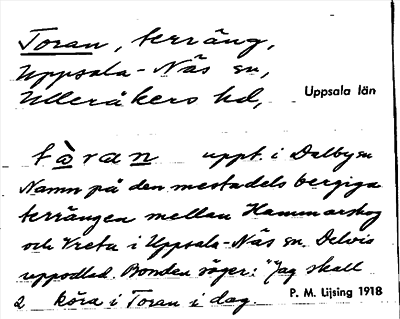 Toran, terräng,
Uppsala-Näs sn,
Ulleråkers hd,
Uppsala län
tòran uppt. i Dalby sn
Namn på den mestadels bergiga
terrängen mellan Hammarskog
och Vreta i Uppsala-Näs sn. Delvis
uppodlad. Bonden säger: "Jag skall
2 köra i Toran i dag.
P. M. Lijsing 1918